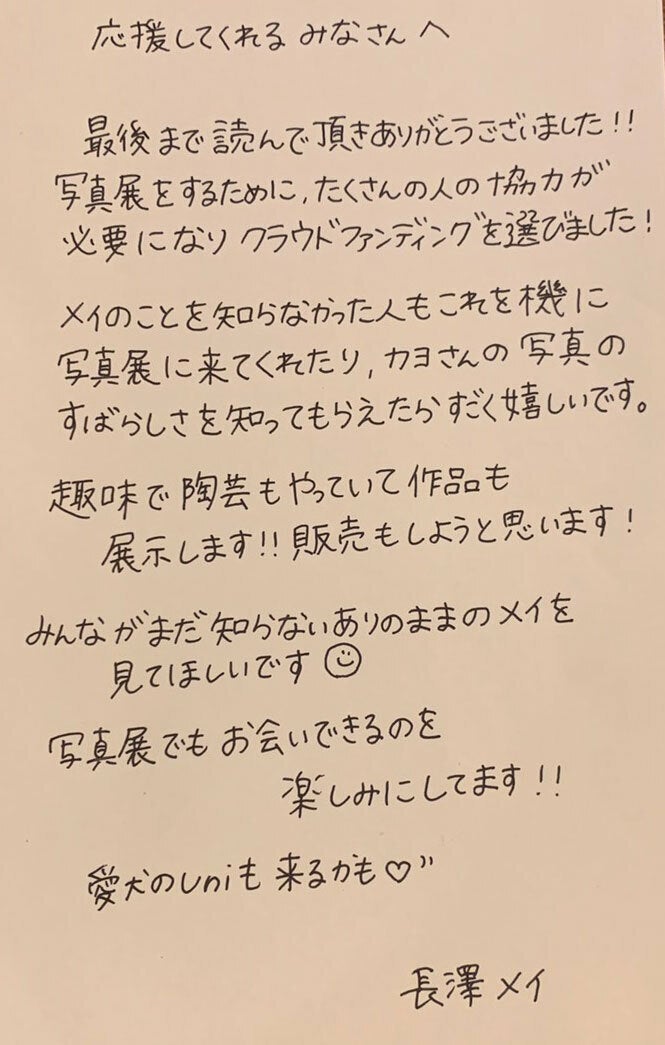 応援してくれる みなさんへ
最後まで読んで頂きありがとうございました!!
写真展をするために、たくさんの人の協力が
必要になり クラウドファンディングを選びました!
メイのことを知らなかった人もこれを機に
写真展に来てくれたり、カヨさんの写真の
すばらしさを知ってもらえたらすごく嬉しいです。
趣味で陶芸もやっていて作品も
展示します!! 販売もしようと思います!
みんながまだ知らないありのままのメイを
見てほしいです☺
写真展でもお会いできるのを
楽しみにしてます!!
愛犬のuniも来るかも♡”
長澤メイ